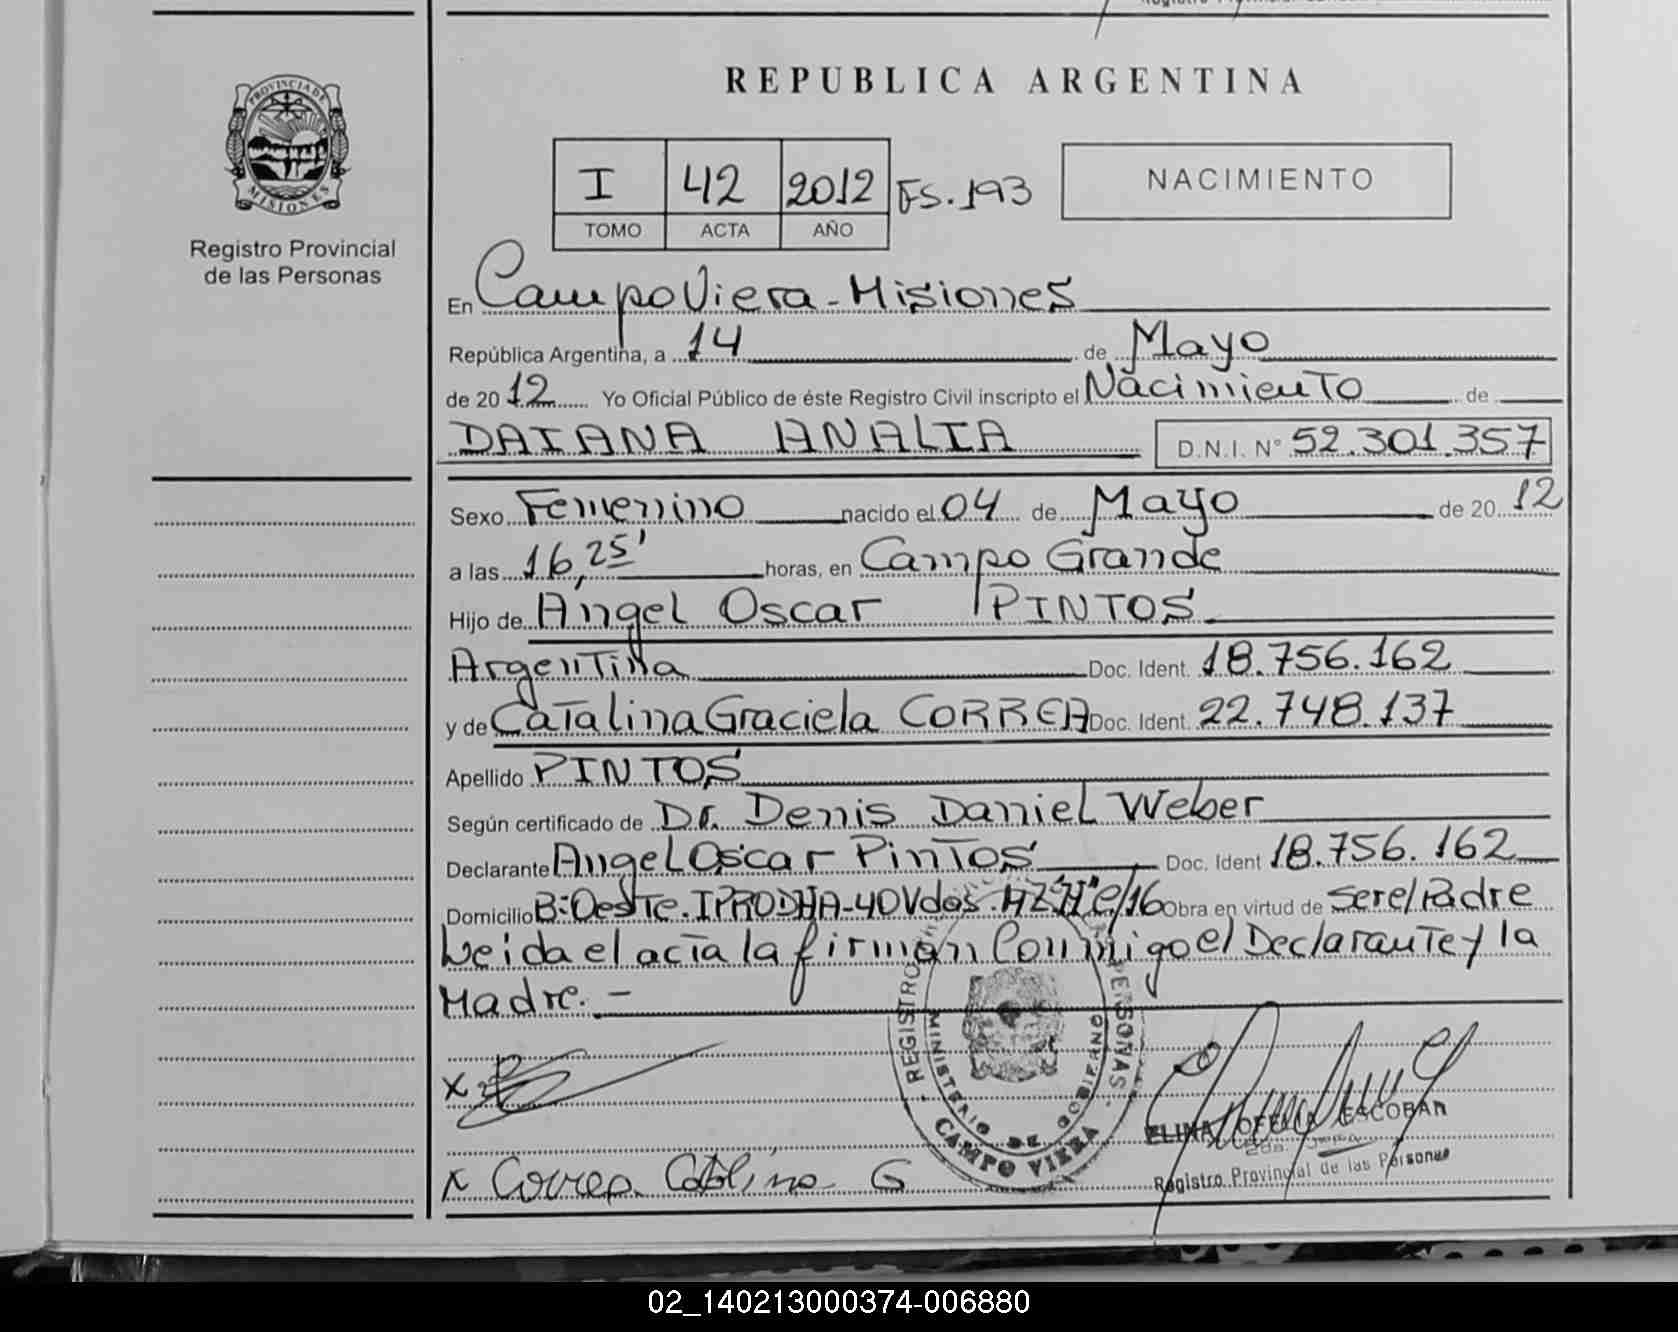 REPUBLICA ARGENTINA
PROVINCIA DE MISIONES
Registro Provincial
de las Personas
I 42 2012 FS. 193
TOMO ACTA AÑO
NACIMIENTO
En Campo Viera - Misiones
República Argentina, a 14 de Mayo
de 20 12 Yo Oficial Público de éste Registro Civil inscripto el Nacimiento de
DAIANA ANALIA D.N.I. N° 52.301.357
Sexo Femenino nacido el 04 de Mayo de 20 12
a las 16,25' horas, en Campo Grande
Hijo de Angel Oscar PINTOS
Argentina Doc. Ident. 18.756.162
y de Catalina Graciela CORREA Doc. Ident. 22.748.137
Apellido PINTOS
Según certificado de Dr. Denis Daniel Weber
Declarante Angel Oscar Pintos Doc. Ident 18.756.162
Domicilio B: Oeste. IPRODHA-40Vdas. Obra en virtud de ser el Padre
Leida el acta la firman Conmigo el Declarante y la
Madre. -
REGISTRO PERSONAS
MINISTERIO DE GOBIERNO
CAMPO VIERA
X
ELINA OFELIA ESCOBAR
Registro Provincial de las Personas
X Correa Catalina G
02_140213000374-006880